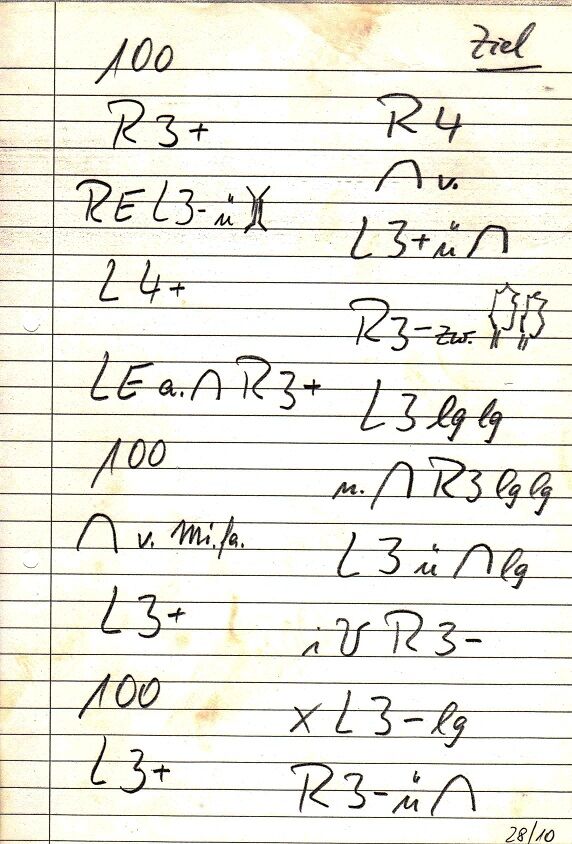 100
R3+
RE L3- ü )(
L4+
LE a. ∩ R3+
100
∩ v. Mi.fa.
L3+
100
L3+
Ziel
R4
∩ v.
L3+ ü ∩
R3- zw.
L3 lg lg
n. ∩ R3 lg lg
L3 ü ∩ lg
i V R3-
x L3- lg
R3- ü ∩
28/10